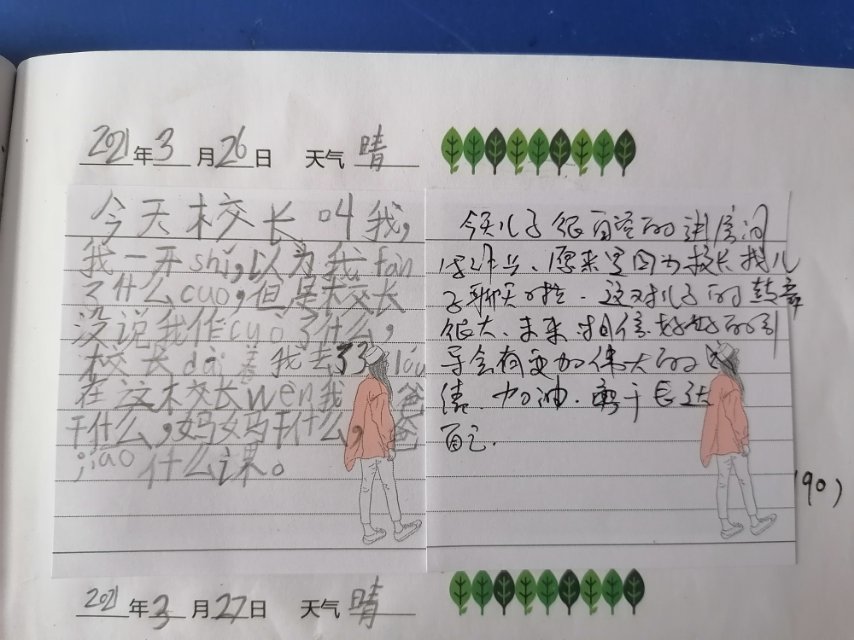 2021年3月26日 天气 晴
今天校长叫我,
我一开shǐ,以为我fàn
了什么cuò,但是校长
没说我作cuò了什么,
校长dài着我去33lóu
在这校长wèn我爸
干什么,妈妈干什么,爸
jiāo什么课。
今天儿子很自豪的
因为校长找儿
子聊天啦. 这对儿子的鼓舞
很大、未来相信好好的引
导会有更加伟大的
绩. 加油. 勇于表达
自己.
(90)
2021年3月27日 天气 晴